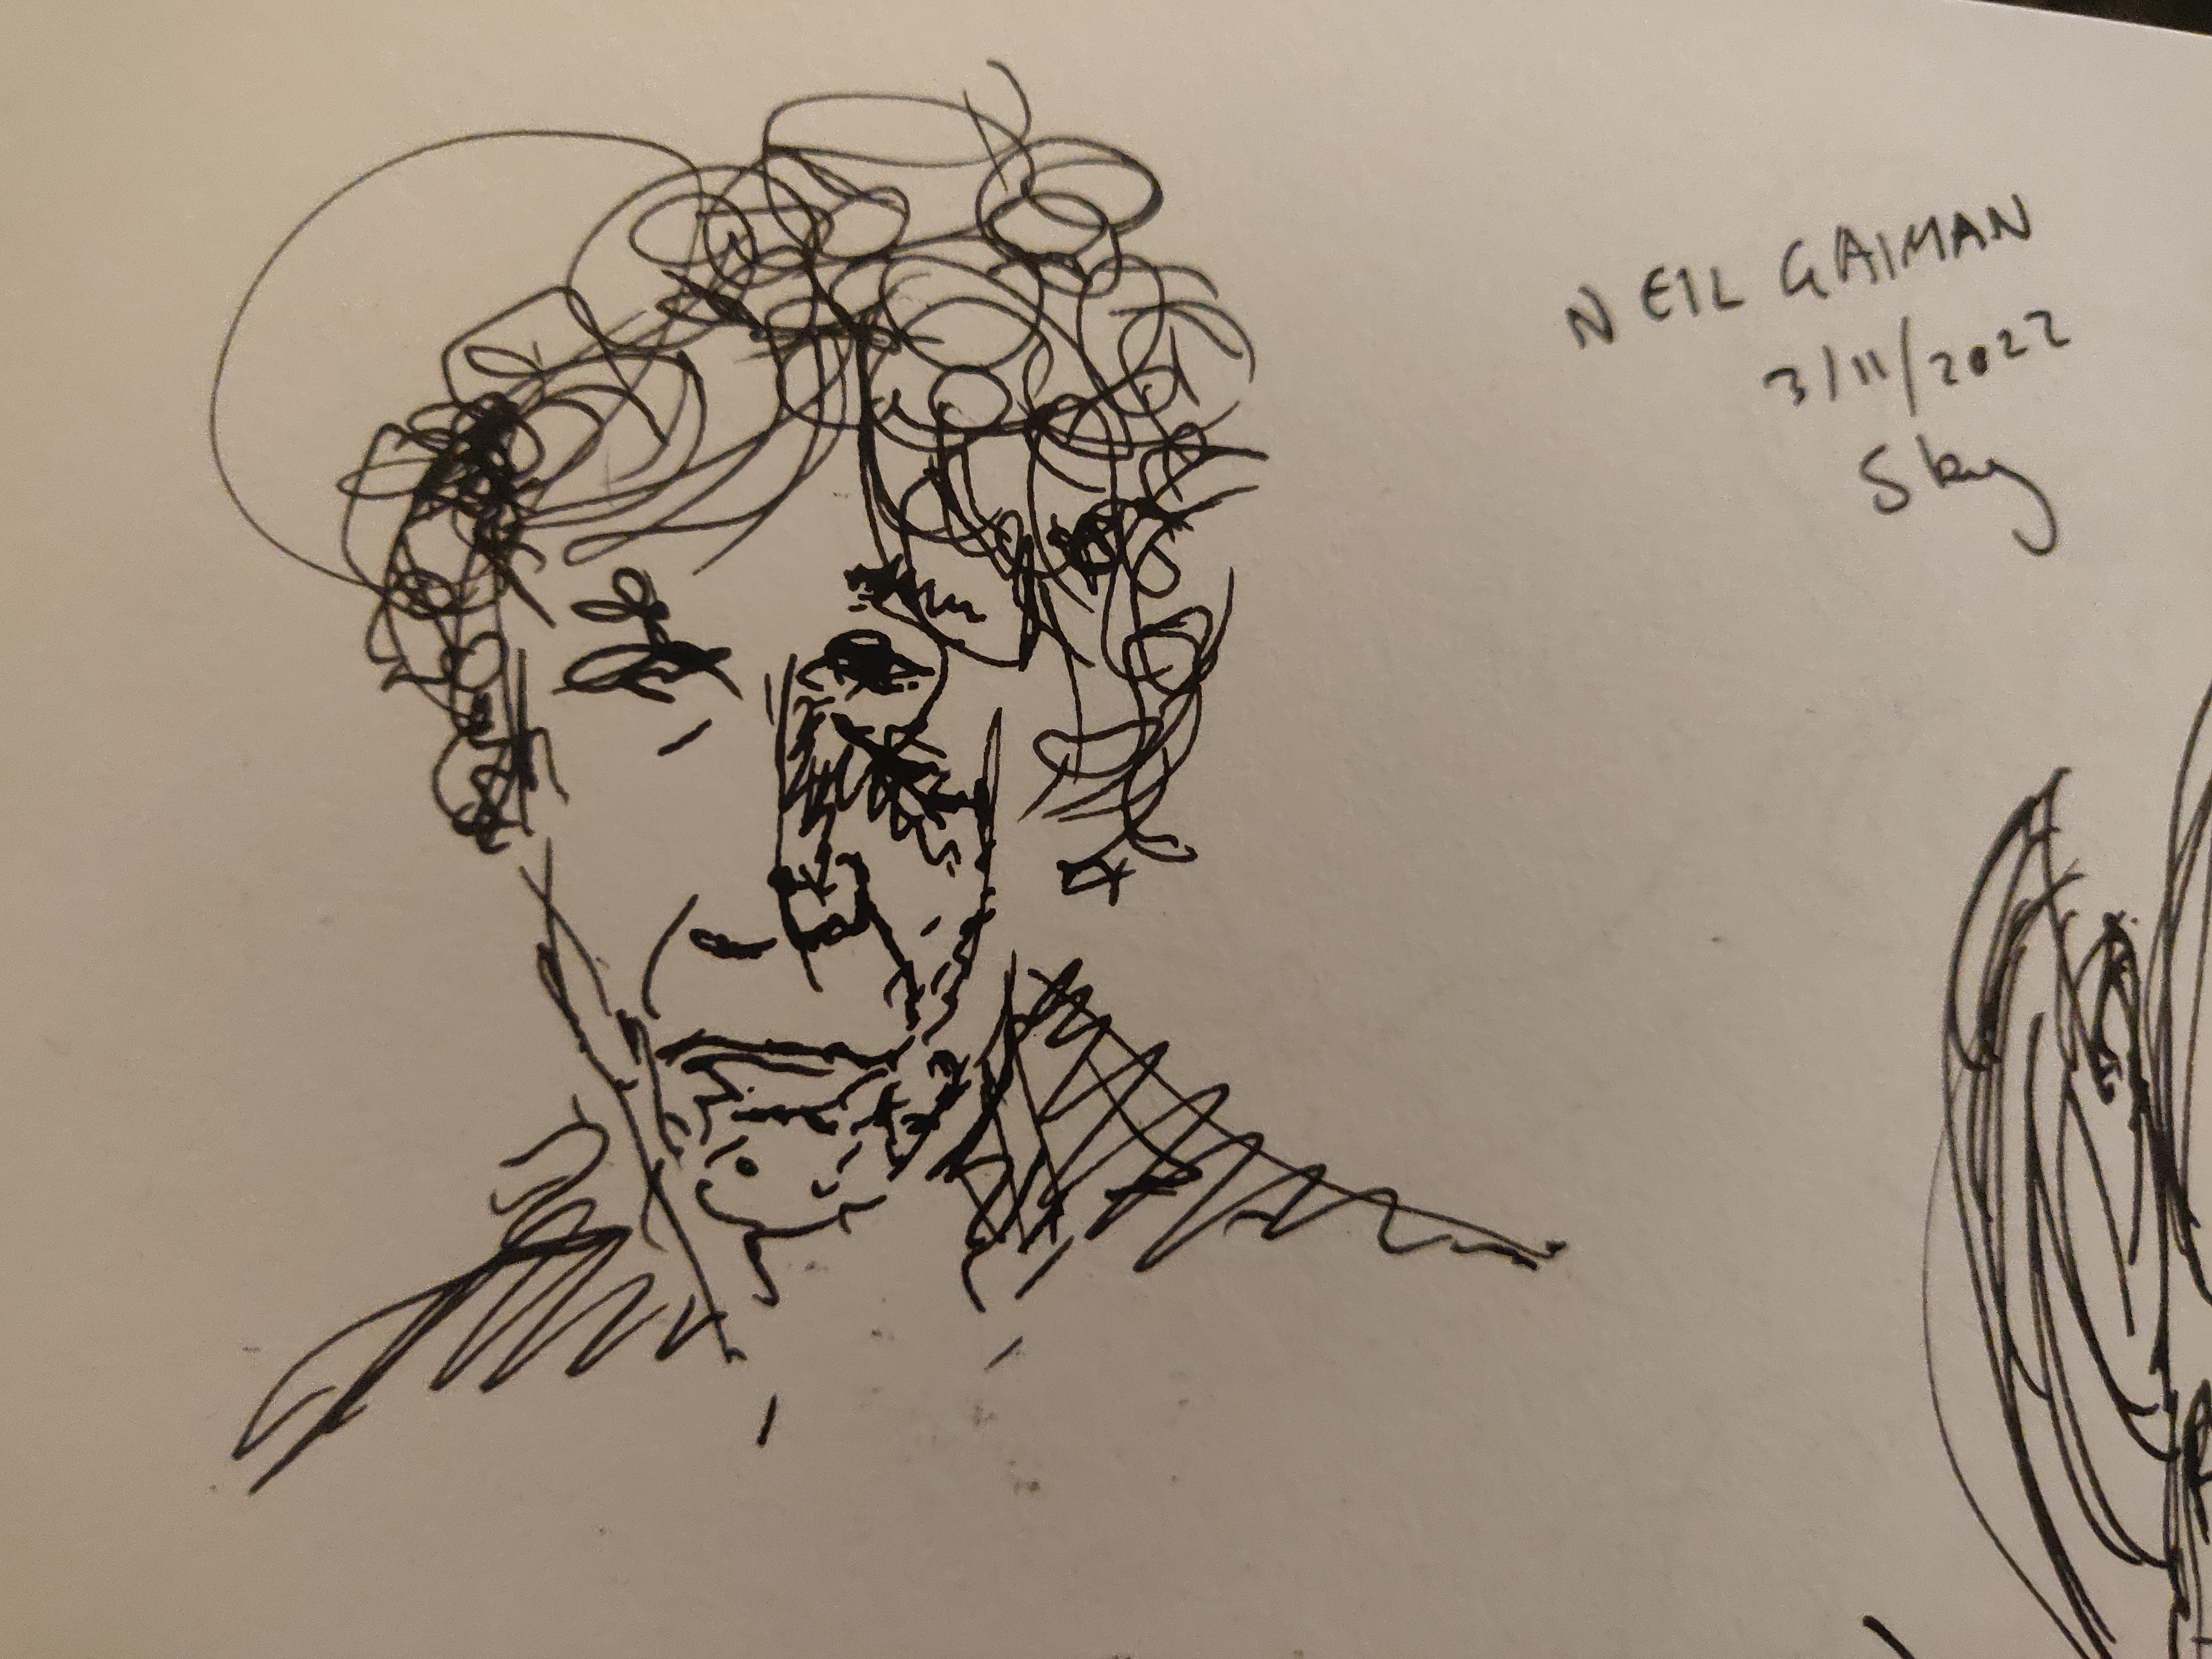 NEIL GAIMAN
3/11/2022
Sky